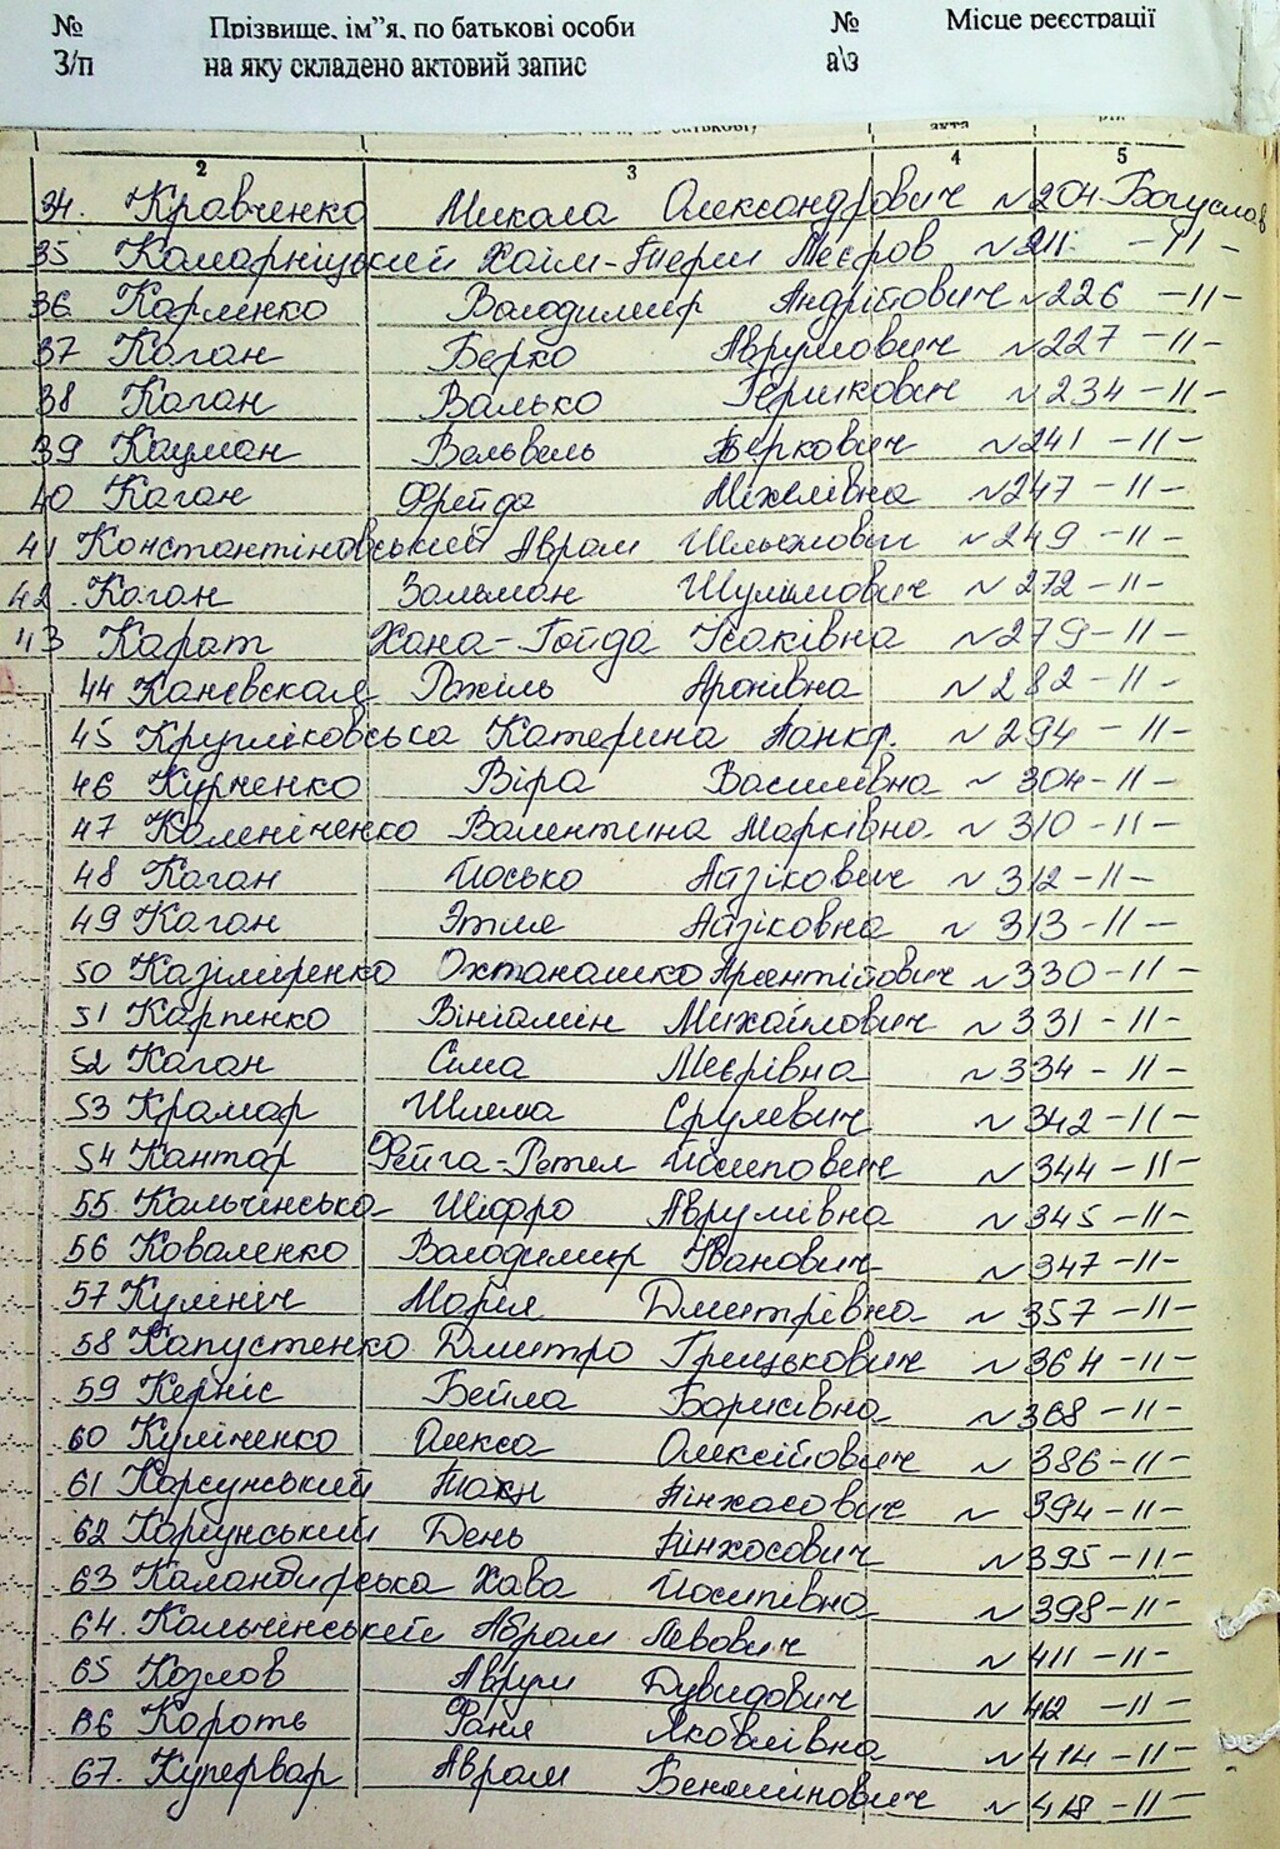 № Прізвище, ім”я, по батькові особи № Місце реєстрації
З/п на яку складено актовий запис а\з
акта
2 3 4 5
34. Кравченко Микола Олександрович №204 Богуслав
35 Комарніцький Хаїм-Терш Меєров №211 -11-
36 Карленко Володимир Андрійович №226 -11-
37 Каган Берко Аврумович №227 -11-
38 Каган Валько Гершкович №234 -11-
39 Кауман Вольвель Беркович №241 -11-
40 Каган Фрейда Міхелівна №247 -11-
41 Константіновський Аврам Шльомович №249 -11-
42 Каган Зальман Шулімович №272 -11-
43 Карат Хана-Гойда Ісаківна №279 -11-
44 Каневская Рахіль Аронівна №282 -11-
45 Крупліковська Катерина Панкр. №294 -11-
46 Курченко Віра Василівна №304 -11-
47 Калениченко Валентина Марківна №310 -11-
48 Каган Йосько Айзікович №312 -11-
49 Каган Этля Айзіковна №313 -11-
50 Казіміренко Охтанашко Арентійович №330 -11-
51 Карпенко Вініамін Михайлович №331 -11-
52 Каган Сима Меєрівна №334 -11-
53 Крамар Шлема Срулевич №342 -11-
54 Кантор Фейга-Ретел Йосипович №344 -11-
55 Кальчінська Шіфра Аврумівна №345 -11-
56 Коваленко Володимир Іванович №347 -11-
57 Кулініч Марія Дмитрівна №357 -11-
58 Капустенко Дмитро Грицькович №364 -11-
59 Керніс Бейла Борисівна №368 -11-
60 Куліченко Олекса Олексійович №386 -11-
61 Корсунський Пінхасович №394 -11-
62 Корсунський День Пінхосович №395 -11-
63 Каландирська Хава Йосипівна №398 -11-
64. Кальчінський Абрам Левович №411 -11-
65 Козлов Аврум Дувидович №412 -11-
66 Короть Фаня Яковлівна №414 -11-
67. Купервар Аврам Беньямінович №418 -11-